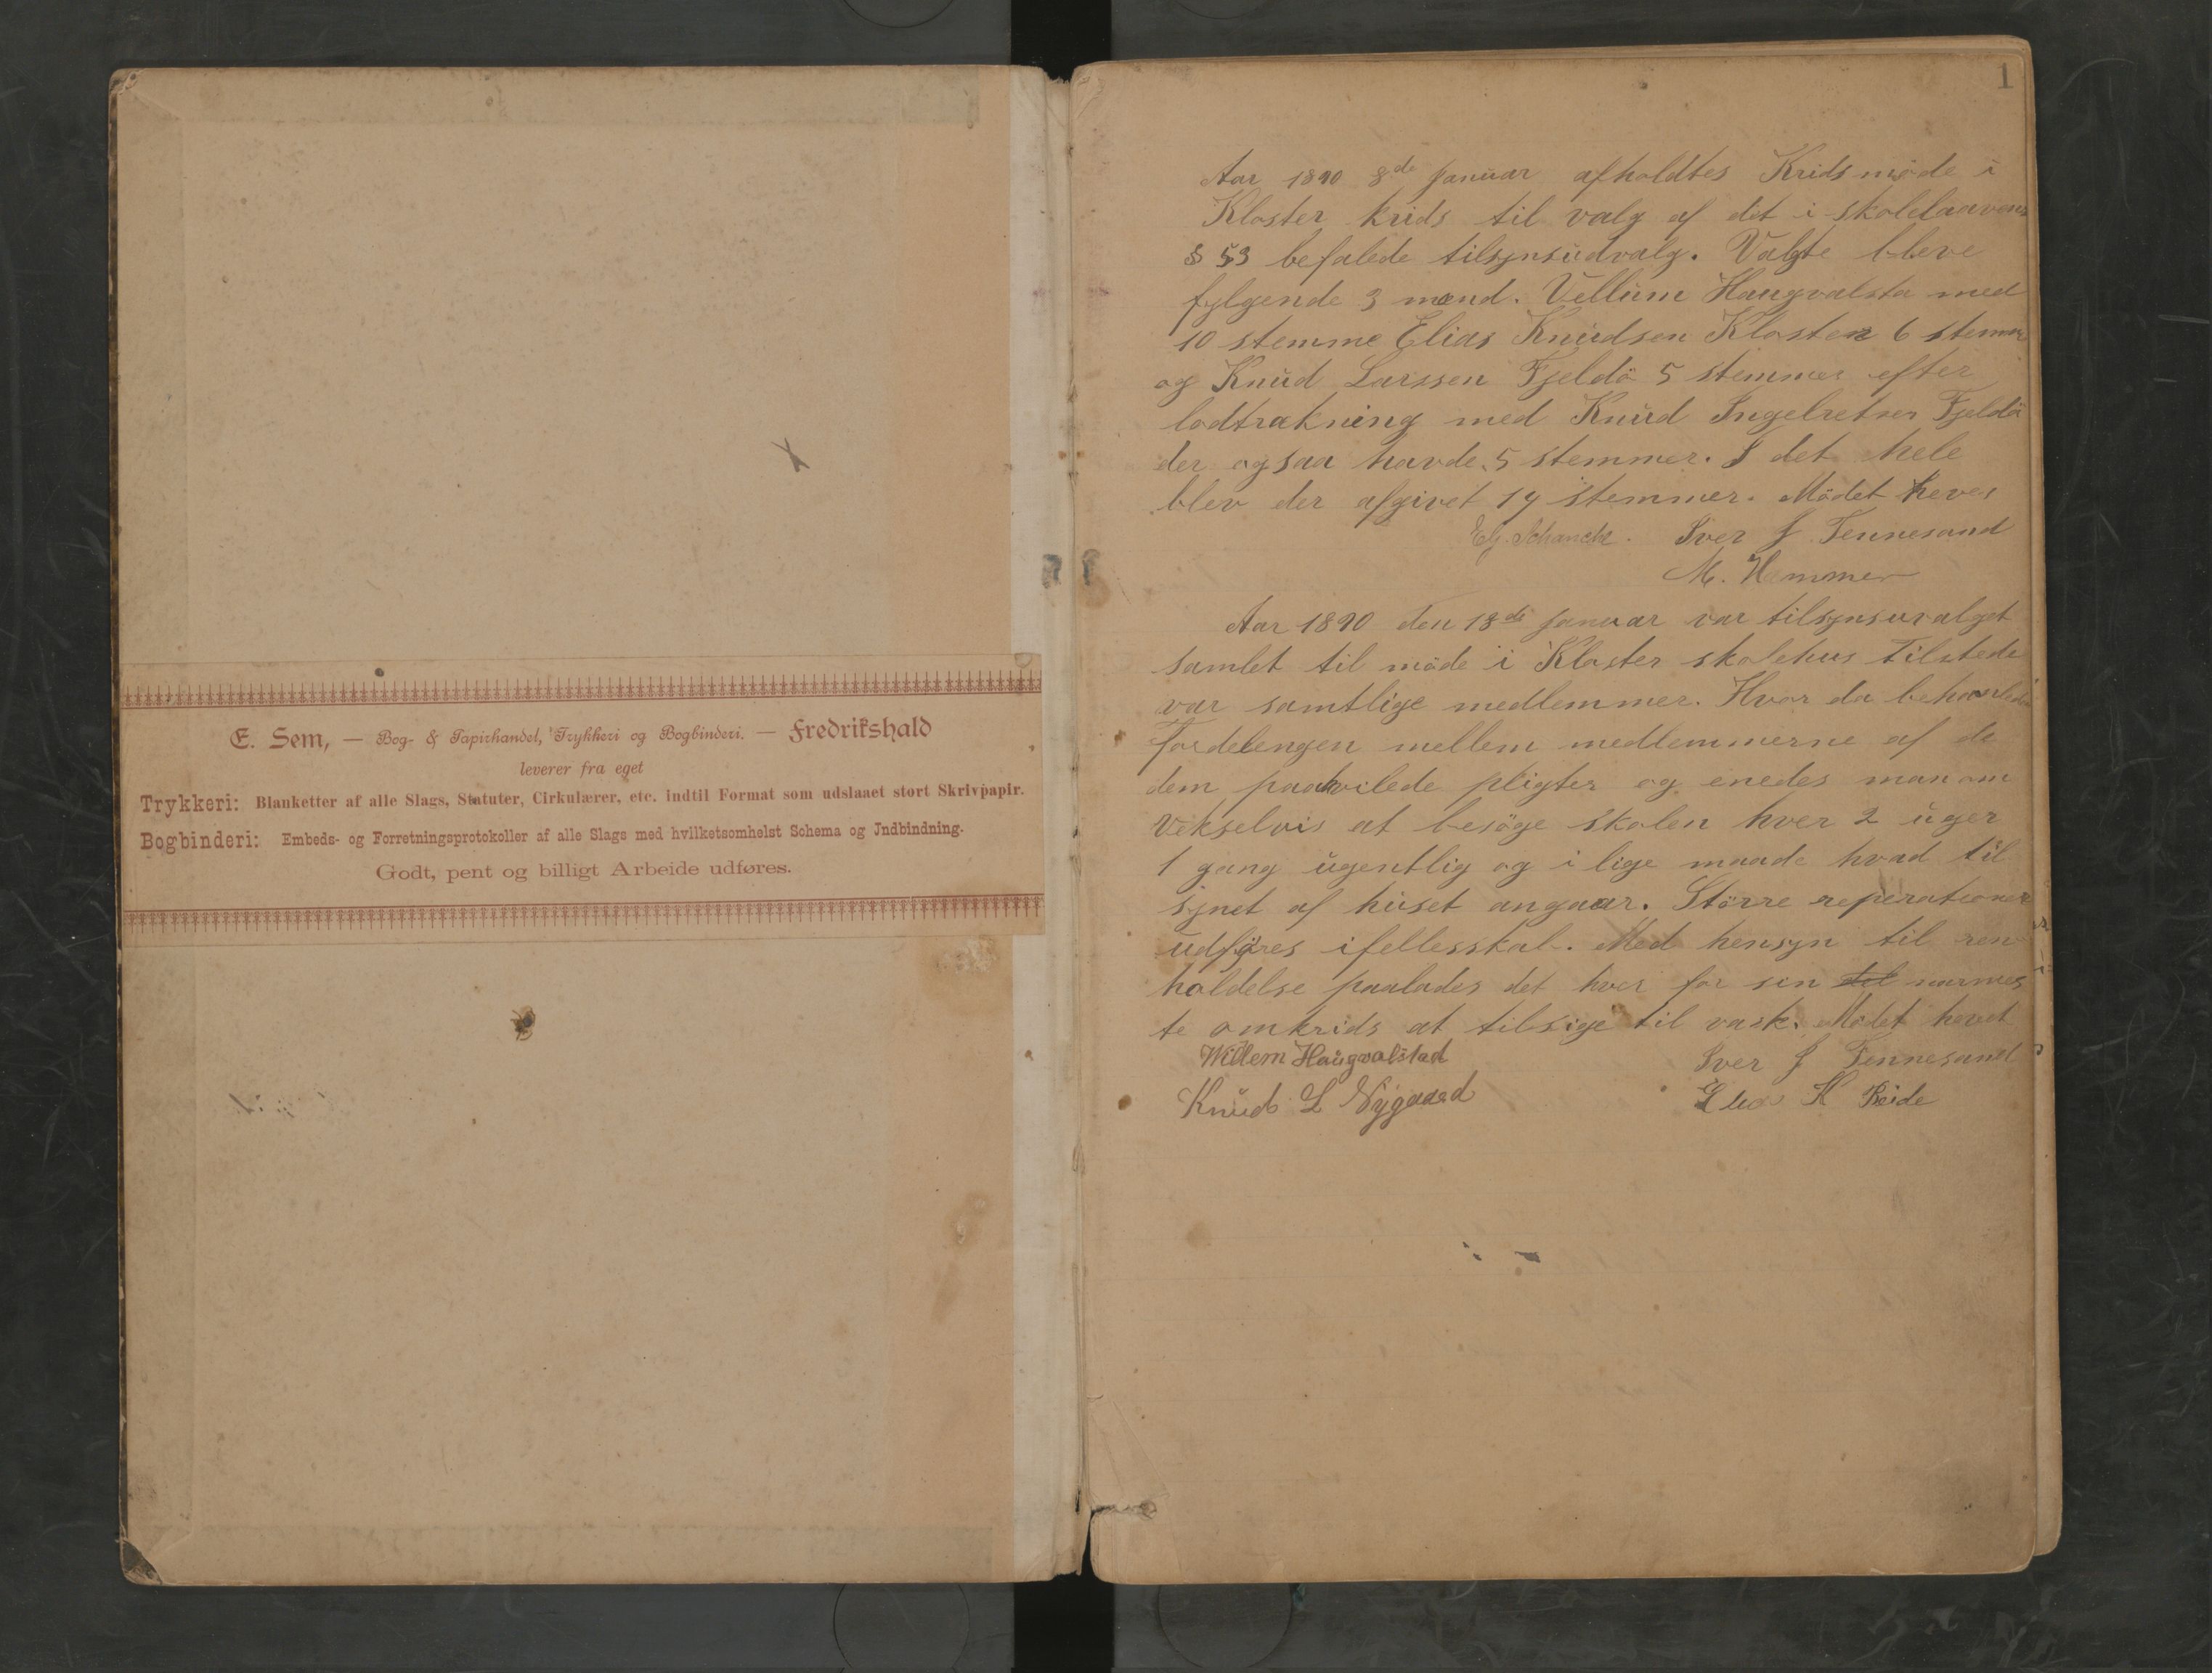 E. Sem, — Bog- & Papirhandel, Trykkeri og Bogbinderi. — Fredrikshald
leverer fra eget
Trykkeri: Blanketter af alle Slags, Statuter, Cirkulærer, etc. indtil Format som udslaaet stort Skrivpapir.
Bogbinderi: Embeds- og Forretningsprotokoller af alle Slags med hvilketsomhelst Schema og Jndbindning.
Godt, pent og billigt Arbeide udføres.
1
Aar 1890 8de Januar afholdtes Kridsmöde i
Kloster krids til valg af det i skolelaavens
§ 53 befalede tilsynsudvalg. Valgte bleve
fylgende 3 mænd. Vellum Haugvalsta med
10 stemme Elias Knudsen Kloster 6 stemmer
og Knud Larssen Fjeldö 5 stemmer efter
lodtrækning med Knud Ingelretsen Fjeldö
der ogsaa havde 5 stemmer. I det hele
blev der afgivet 14 stemmer. Mödet heves
Schanche. Iver J Tennesand
M. Hammer
Aar 1890 den 18de Januar var tilsynsuvalget
samlet til möde i Kloster skolehus Tilstede
var samtlige medlemmer. Hvor da behandledes
Fordelengen mellem medlemmerne af de
dem paahvilede pligter og enedes man om
Vekselvis at besöge skolen hver 2 uger
1 gang ugentlig og i lige maade hvad til
synet af huset angaar. Större reperationer
udföres ifellesskab. Med hensyn til ren
holdelse paalades det hver for sin del nærmes
te omkrids at tilsige til vask. Mödet hevet
Willem Haugvalstad Iver J Tennesand
Knud L Nygaard Elias K Reide